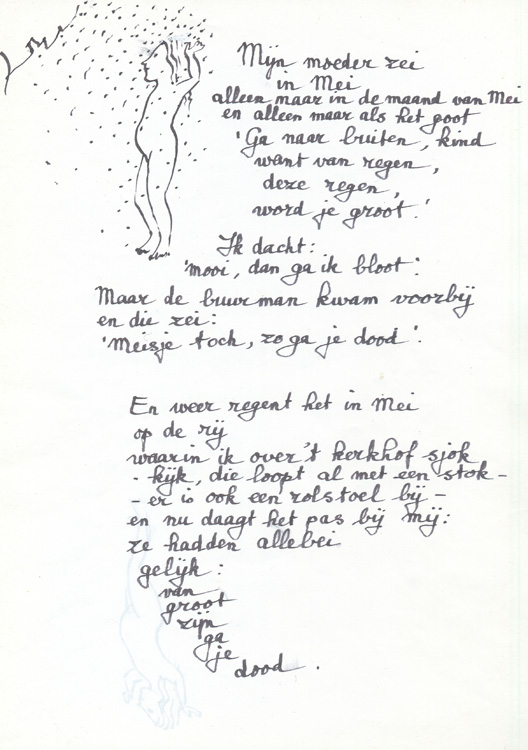 Mijn moeder zei
in Mei
alleen maar in de maand van Mei
en alleen maar als het goot
'Ga naar buiten, kind
want van regen,
deze regen,
word je groot.'
Ik dacht:
'mooi, dan ga ik bloot'.
Maar de buurman kwam voorbij
en die zei:
'Meisje toch, zo ga je dood'.
En weer regent het in Mei
op de rij
waarin ik over 't kerkhof sjok
- kijk, die loopt al met een stok -
- er is ook een rolstoel bij -
en nu daagt het pas bij mij:
ze hadden allebei
gelijk:
van
groot
zijn
ga
je
dood.